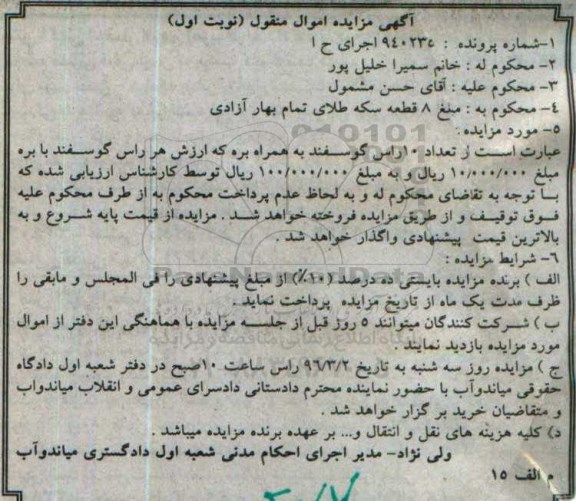 آگهی مزایده اموال منقول (نوبت اول)
۱-شماره پرونده : ۹۴۰۲۳۵ اجرای ح ۱
۲- محکوم له : خانم سمیرا خلیل پور
۳- محکوم علیه : آقای حسن مشمول
۴- محکوم به : مبلغ ۸ قطعه سکه طلای تمام بهار آزادی
۵- مورد مزایده :
عبارت است ز تعداد ۱۰راس گوسفند به همراه بره که ارزش هر راس گوسفند با بره
مبلغ ۱۰/۰۰۰/۰۰۰ ریال و به مبلغ ۱۰۰/۰۰۰/۰۰۰ ریال توسط کارشناس ارزیابی شده که
با توجه به تقاضای محکوم له و به لحاظ عدم پرداخت محکوم به از طرف محکوم علیه
فوق توقیف و از طریق مزایده فروخته خواهد شد . مزایده از قیمت پایه شروع و به
بالاترین قیمت پیشنهادی واگذار خواهد شد .
۶- شرایط مزایده :
الف ) برنده مزایده بایستی ده درصد (۱۰٪) از مبلغ پیشنهادی را فی المجلس و مابقی را
ظرف مدت یک ماه از تاریخ مزایده پرداخت نماید .
ب ) شرکت کنندگان میتوانند ۵ روز قبل از جلسه مزایده با هماهنگی این دفتر از اموال
مورد مزایده بازدید نمایند .
ج ) مزایده روز سه شنبه به تاریخ ۹۶/۳/۲ راس ساعت ۱۰صبح در دفتر شعبه اول دادگاه
حقوقی میاندوآب با حضور نماینده محترم دادستانی دادسرای عمومی و انقلاب میاندواب
و متقاضیان خرید بر گزار خواهد شد .
د) کلیه هزینه های نقل و انتقال و... بر عهده برنده مزایده میباشد .
ولی نژاد- مدیر اجرای احکام مدنی شعبه اول دادگستری میاندوآب
م الف ۱۵